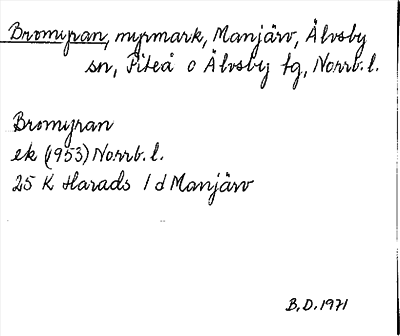 Bromyran, myrmark, Manjärv, Älvsby
sn, Piteå o Älvsby tg, Norrb. l.
Bromyran
ek (1953) Norrb. l.
25 K Harads 1 d Manjärv
B.D. 1971